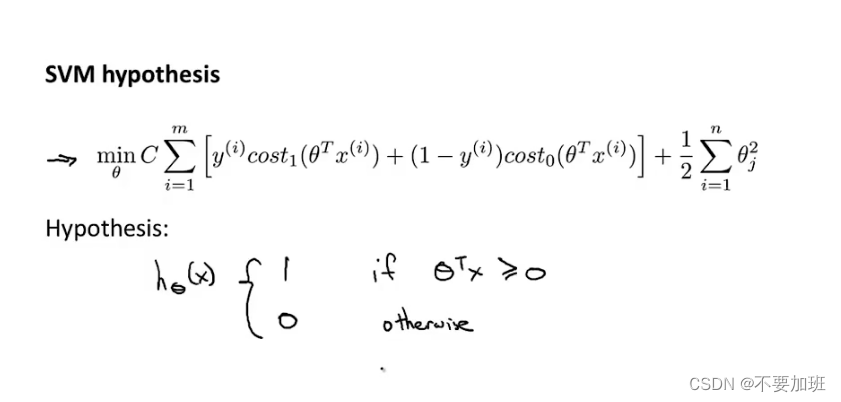 SVM hypothesis
→ min_θ C ∑_{i=1}^{m} [y^{(i)} cost_1(θ^T x^{(i)}) + (1 − y^{(i)}) cost_0(θ^T x^{(i)})] + 1/2 ∑_{i=1}^{n} θ_j^2
Hypothesis:
h_θ(x) { 1 if θ^T x ≥ 0
0 otherwise
CSDN @不要加班